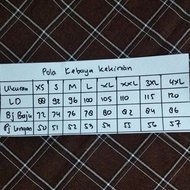 Pola Kebaya Kekinian
Ukuran XS S M L XL XXL 3XL 4XL
LD 88 92 96 100 105 110 115 120
Pj Baju 72 74 76 78 80 82 84 86
Pj Lengan 50 51 52 53 54 55 56 57